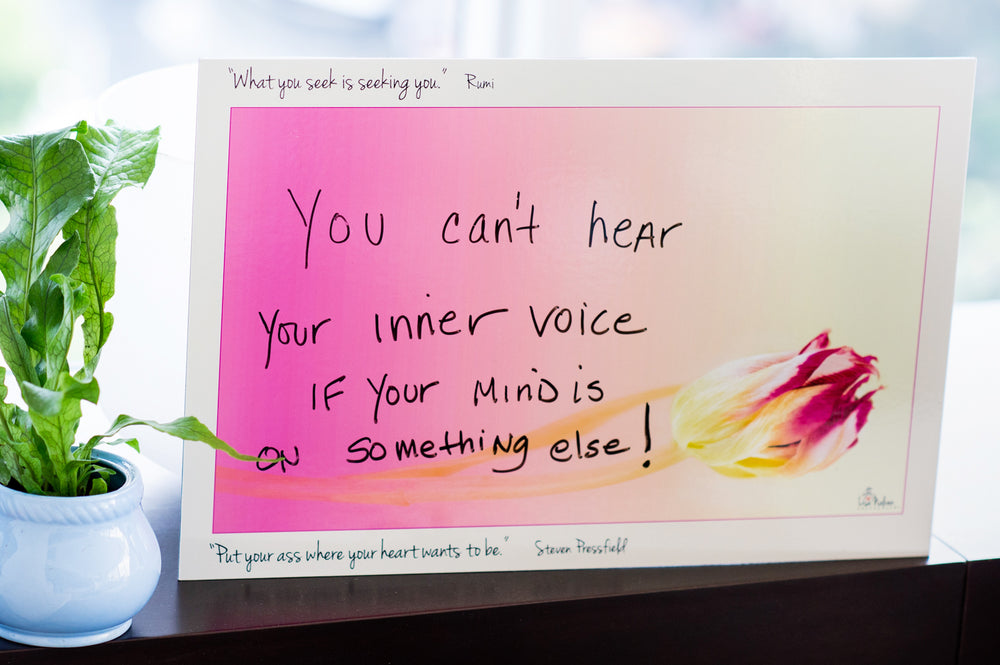 "What you seek is seeking you." Rumi
You can't heAr
Your inner voice
IF Your MinD is
ON something else!
"Put your ass where your heart wants to be." Steven Pressfield